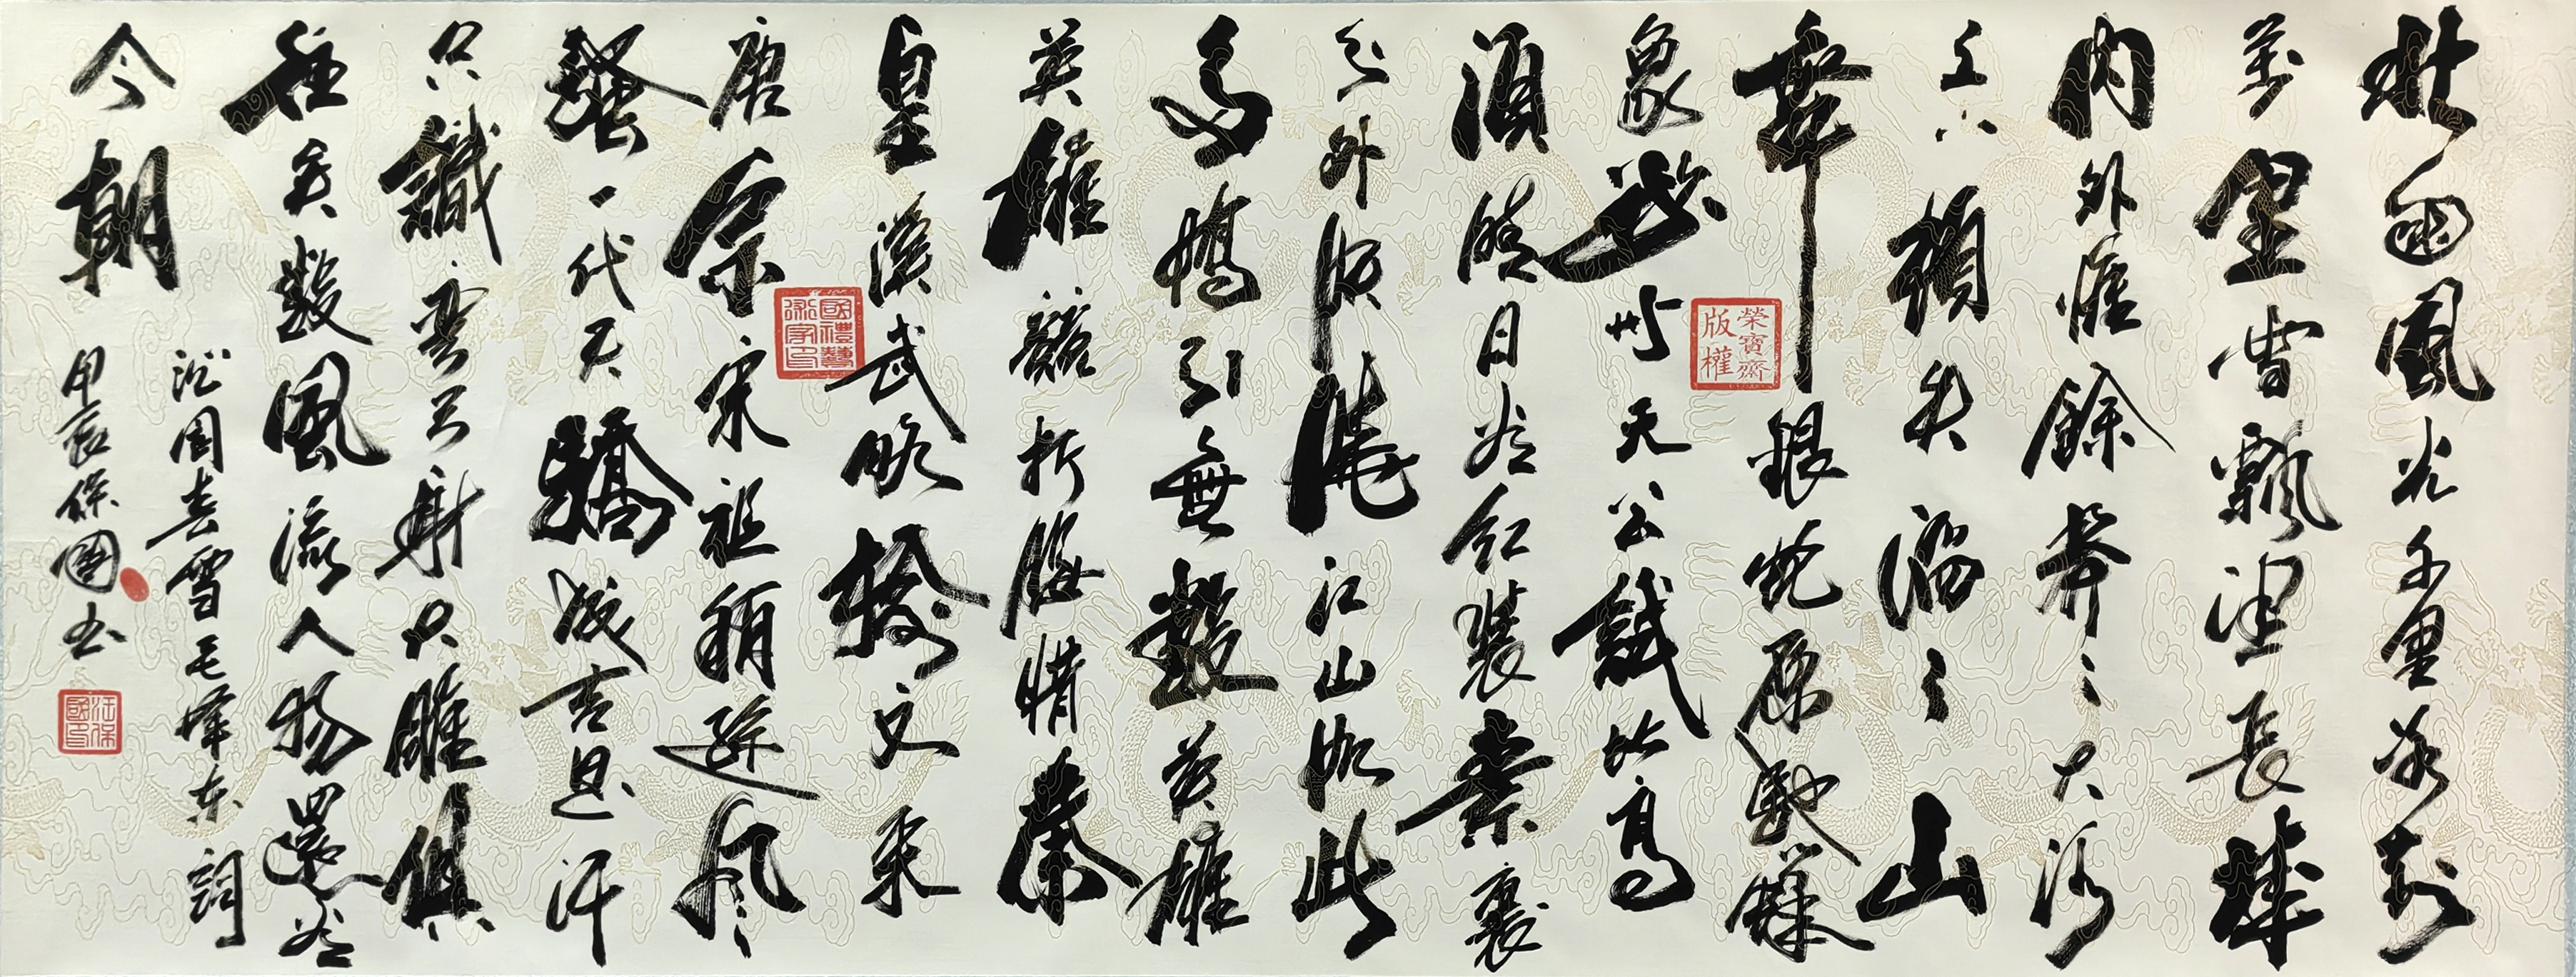 北國風光千里冰封
萬里雪飄望長城
内外惟餘莽〻大河
上下頓失滔〻山
舞銀蛇原馳蠟
象欲與天公試比高
須晴日看紅裝素裹
分外妖嬈江山如此
多嬌引無數英雄
英雄競折腰惜秦
皇漢武略輸文采
唐宗宋祖稍遜風
騷一代天驕成吉思汗
只識彎弓射大雕俱
往矣數風流人物還看
今朝
沁園春雪毛澤東詞
甲辰保國書
榮寶齋版權
國禮藝術家印
汪保國印